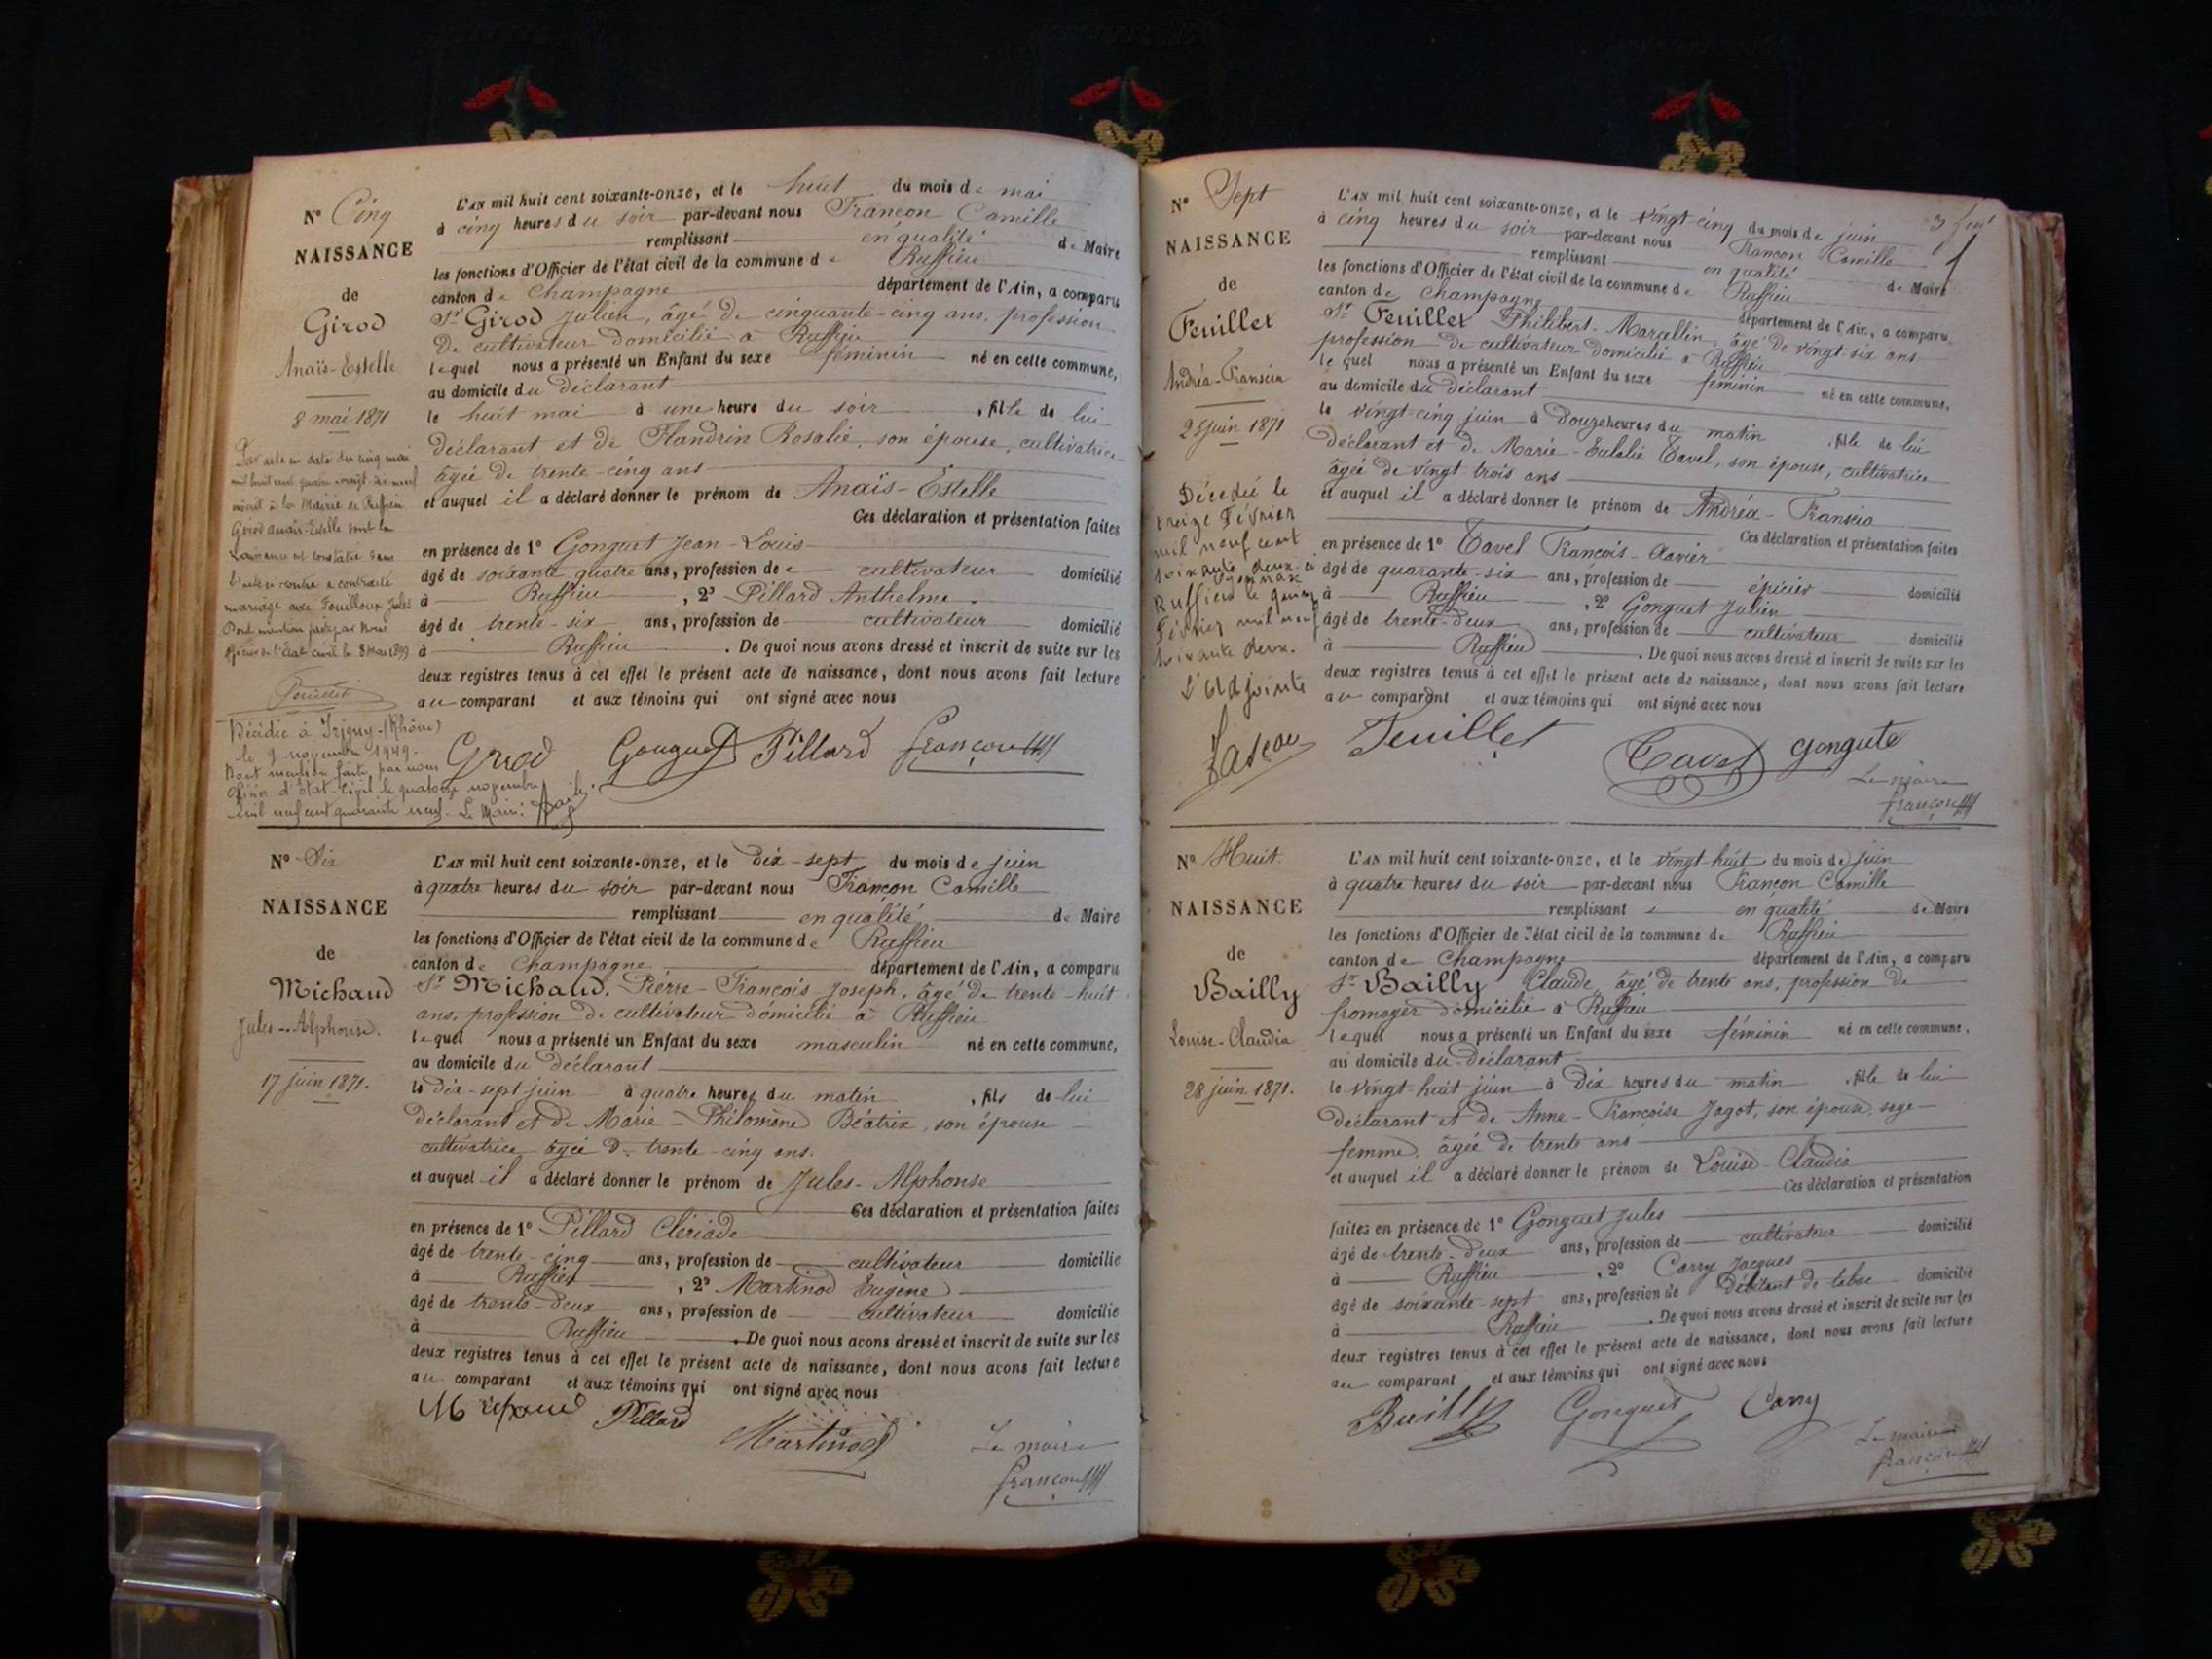 N° Cinq
NAISSANCE
de
Girod
Anaïs-Estelle
8 mai 1871
Par acte en date du cinq mai
mil huit cent quatre-vingt-dix-neuf
inscrit à la Mairie de Ruffieu
Girod Anaïs-Estelle dont la
naissance est constatée dans
l'acte ci-contre a contracté
mariage avec Fouilloux Jules
Dont mention faite par Nous
officier de l'état civil le 8 Mai 1899
Feuillet
Décédée à Irigny (Rhône)
le 9 novembre 1949.
Dont mention faite par nous
Officier d'Etat-Civil le quatorze novembre
mil neuf cent quarante neuf. Le Maire:
L'AN mil huit cent soixante-onze, et le huit du mois de mai
à cinq heures du soir par-devant nous Françon Camille
remplissant en qualité de Maire
les fonctions d'Officier de l'état civil de la commune de Ruffieu
canton de Champagne département de l'Ain, a comparu
Sr Girod Julien, âgé de cinquante-cinq ans, profession
de cultivateur domicilié à Ruffieu
lequel nous a présenté un Enfant du sexe féminin né en cette commune,
au domicile du déclarant
le huit mai à une heure du soir, fille de lui
déclarant et de Flandrin Rosalie, son épouse, cultivatrice
âgée de trente-cinq ans
et auquel il a déclaré donner le prénom de Anaïs-Estelle
Ces déclaration et présentation faites
en présence de 1° Gonguet Jean-Louis
âgé de soixante quatre ans, profession de cultivateur domicilié
à Ruffieu, 2° Pillard Anthelme
âgé de trente-six ans, profession de cultivateur domicilié
à Ruffieu. De quoi nous avons dressé et inscrit de suite sur les
deux registres tenus à cet effet le présent acte de naissance, dont nous avons fait lecture
au comparant et aux témoins qui ont signé avec nous
Girod Gonguet Pillard Françon
N° Six
NAISSANCE
de
Michaud
Jules-Alphonse.
17 juin 1871.
L'AN mil huit cent soixante-onze, et le dix-sept du mois de juin
à quatre heures du soir par-devant nous Françon Camille
remplissant en qualité de Maire
les fonctions d'Officier de l'état civil de la commune de Ruffieu
canton de Champagne département de l'Ain, a comparu
Sr Michaud, Pierre-François-Joseph, âgé de trente-huit
ans, profession de cultivateur domicilié à Ruffieu
lequel nous a présenté un Enfant du sexe masculin né en cette commune,
au domicile du déclarant
le dix-sept juin à quatre heures du matin, fils de lui
déclarant et de Marie-Philomène Béatrix, son épouse
cultivatrice âgée de trente-cinq ans.
et auquel il a déclaré donner le prénom de Jules-Alphonse
Ces déclaration et présentation faites
en présence de 1° Pillard Clériade
âgé de trente-cinq ans, profession de cultivateur domicilié
à Ruffieu, 2° Martinod Eugène
âgé de trente-deux ans, profession de cultivateur domicilié
à Ruffieu. De quoi nous avons dressé et inscrit de suite sur les
deux registres tenus à cet effet le présent acte de naissance, dont nous avons fait lecture
au comparant et aux témoins qui ont signé avec nous
Michaud Pillard Martinod
Le maire
Françon
N° Sept
NAISSANCE
de
Feuillet
Andréa-Franscia
25 juin 1871
Décédée le
treize Février
mil neuf cent
soixante deux à
Oyonnax
Ruffieu le quinze
Février mil neuf
soixante deux.
L'adjointe
L'AN mil huit cent soixante-onze, et le vingt-cinq du mois de juin
à cinq heures du soir par-devant nous Françon Camille
remplissant en qualité de Maire
les fonctions d'Officier de l'état civil de la commune de Ruffieu
canton de Champagne département de l'Ain, a comparu
Sr Feuillet Philibert-Marcellin, âgé de vingt-six ans
profession de cultivateur domicilié à Ruffieu
lequel nous a présenté un Enfant du sexe féminin né en cette commune,
au domicile du déclarant
le vingt-cinq juin à douze heures du matin, fille de lui
déclarant et de Marie-Eulalie Tavel, son épouse, cultivatrice
âgée de vingt-trois ans
et auquel il a déclaré donner le prénom de Andréa-Franscia
Ces déclaration et présentation faites
en présence de 1° Tavel François-Xavier
âgé de quarante-six ans, profession de épicier domicilié
à Ruffieu, 2° Gonguet Julien
âgé de trente-deux ans, profession de cultivateur domicilié
à Ruffieu. De quoi nous avons dressé et inscrit de suite sur les
deux registres tenus à cet effet le présent acte de naissance, dont nous avons fait lecture
au comparant et aux témoins qui ont signé avec nous
Feuillet Tavel Gongute
Le maire
Françon
N° Huit.
NAISSANCE
de
Bailly
Louise-Claudia
28 juin 1871.
L'AN mil huit cent soixante-onze, et le vingt-huit du mois de juin
à quatre heures du soir par-devant nous Françon Camille
remplissant en qualité de Maire
les fonctions d'Officier de l'état civil de la commune de Ruffieu
canton de Champagne département de l'Ain, a comparu
Sr Bailly Claude, âgé de trente ans, profession de
fromager domicilié à Ruffieu
lequel nous a présenté un Enfant du sexe féminin né en cette commune,
au domicile du déclarant
le vingt-huit juin à dix heures du matin, fille de lui
déclarant et de Anne-Françoise Jagot, son épouse, sage-
femme, âgée de trente ans
et auquel il a déclaré donner le prénom de Louise-Claudia
Ces déclaration et présentation
faites en présence de 1° Gonguet Jules
âgé de trente-deux ans, profession de cultivateur domicilié
à Ruffieu, 2° Carry Jacques
âgé de soixante-sept ans, profession de débitant de tabac domicilié
à Ruffieu. De quoi nous avons dressé et inscrit de suite sur les
deux registres tenus à cet effet le présent acte de naissance, dont nous avons fait lecture
au comparant et aux témoins qui ont signé avec nous
Bailly Gonguet Carry
Le maire
Françon